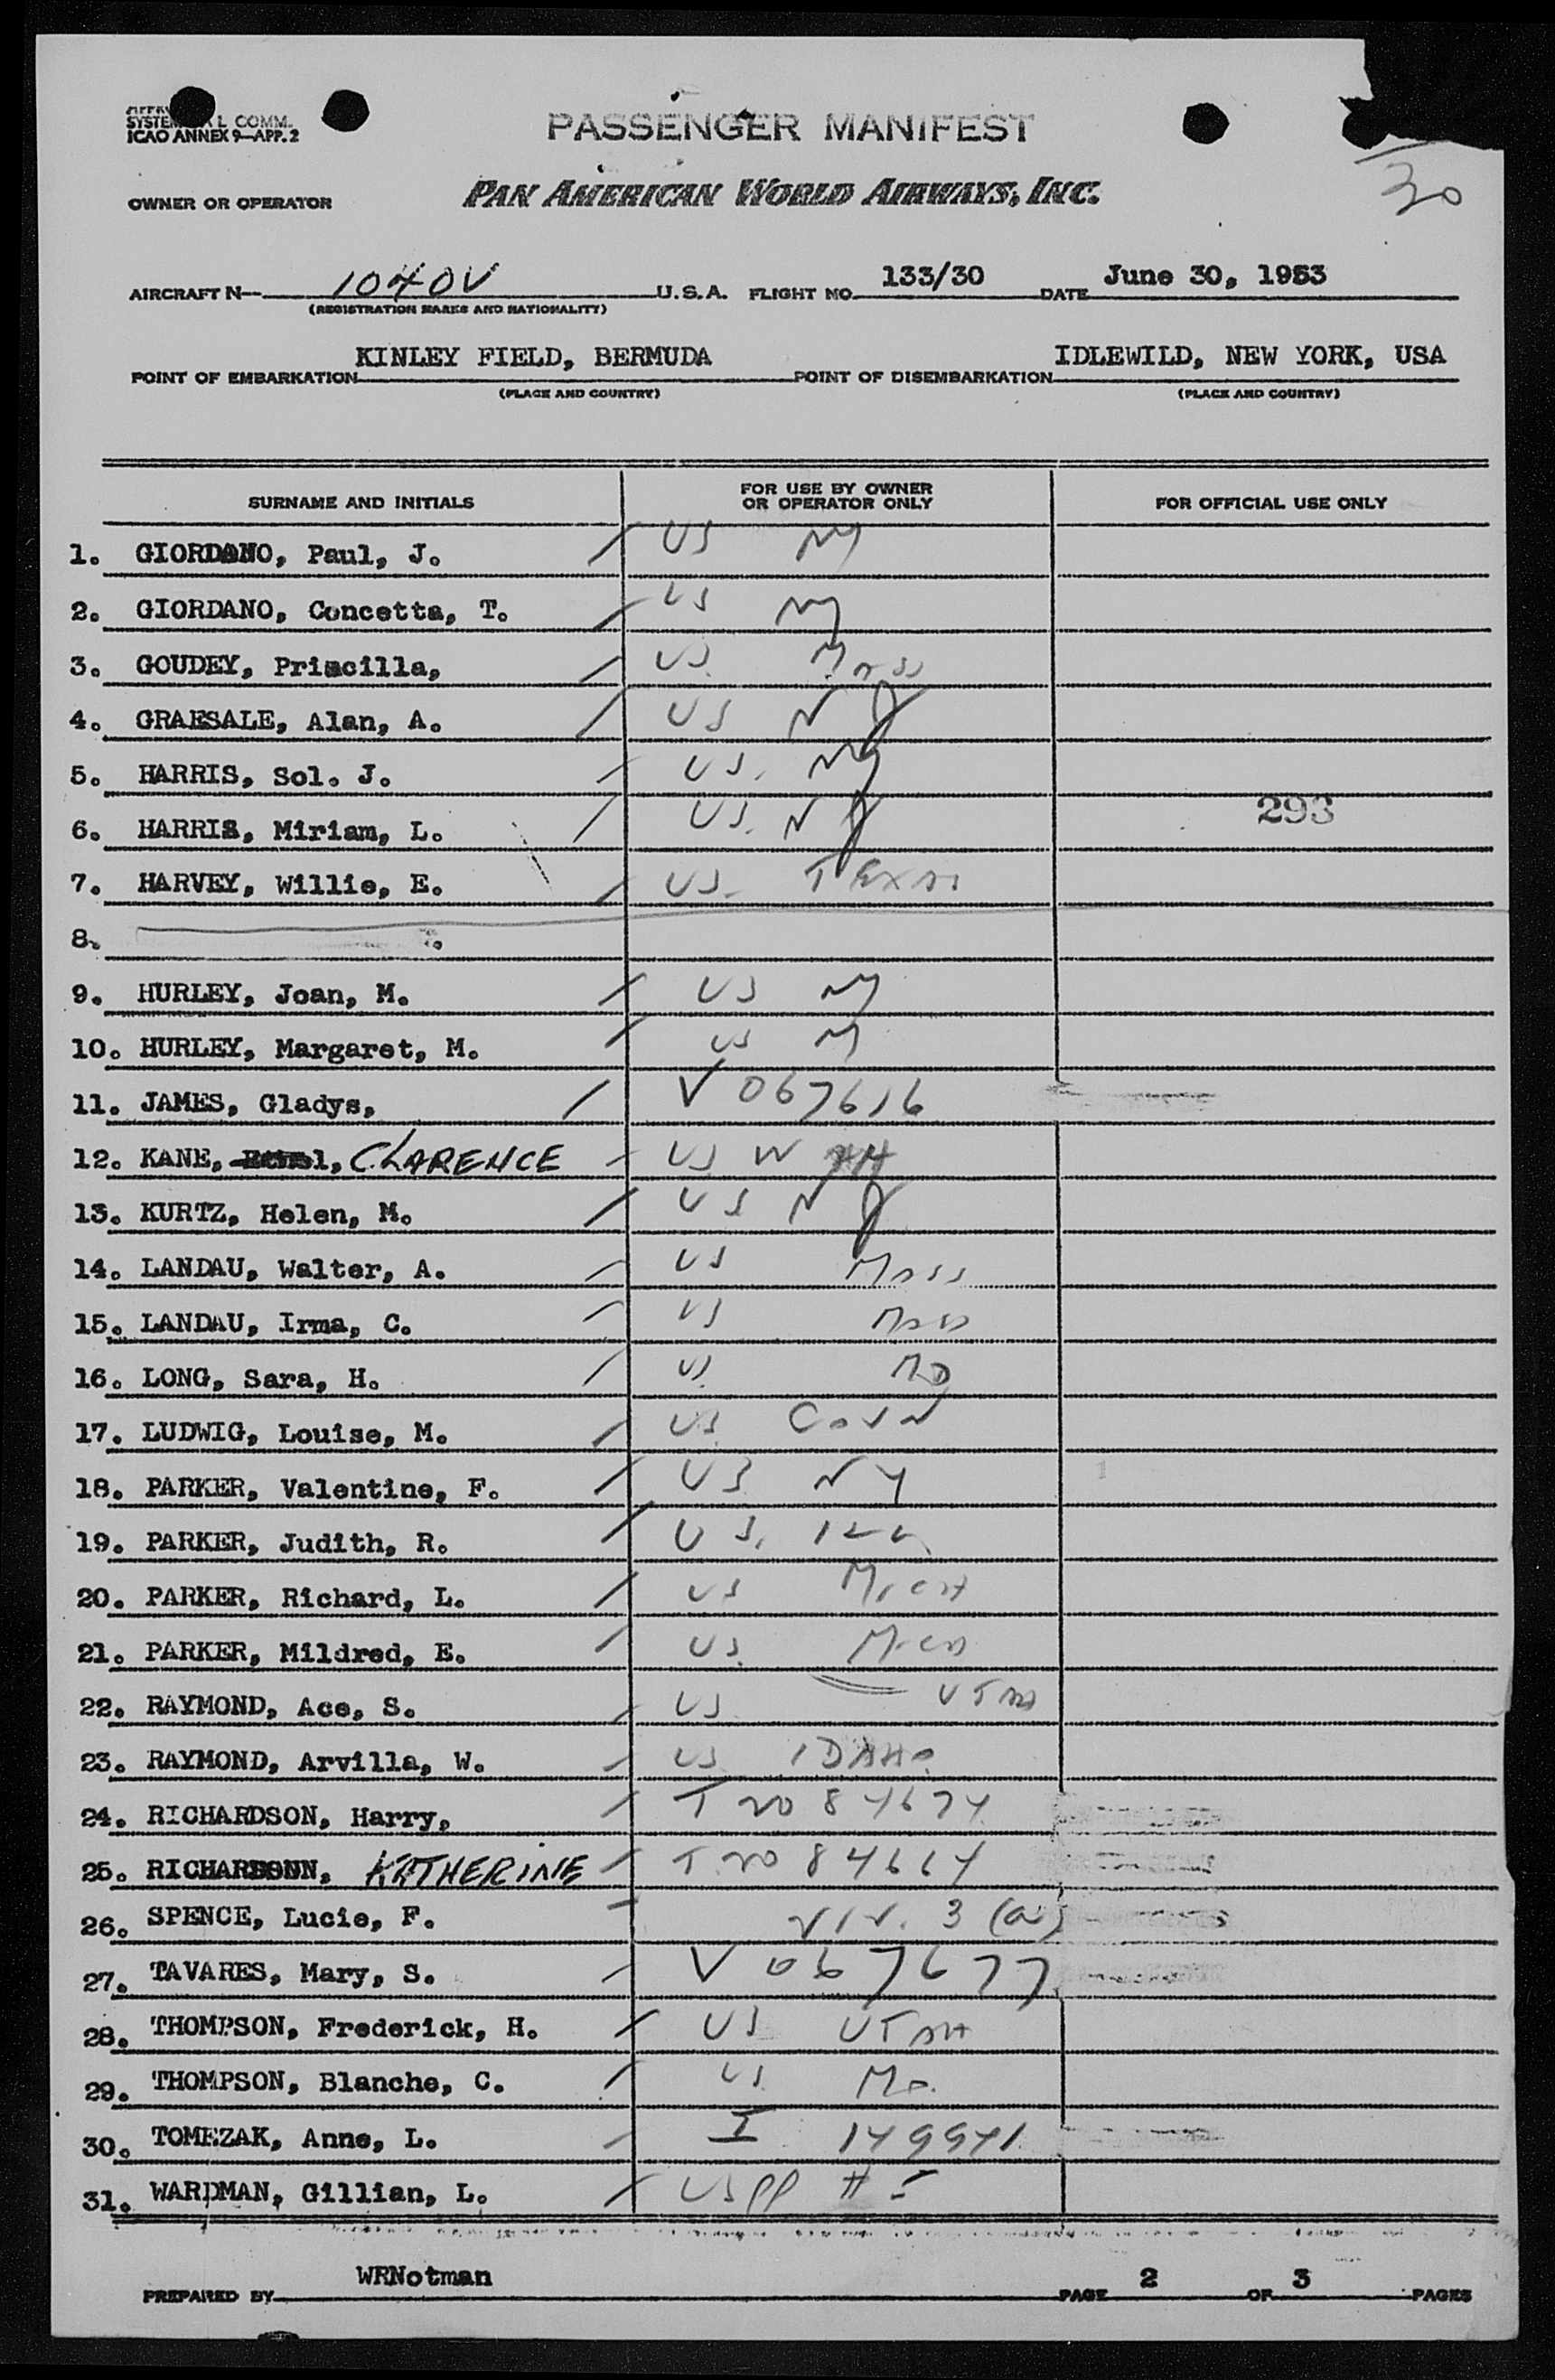 SYSTEM L COMM.
ICAO ANNEX 9—APP. 2
PASSENGER MANIFEST
OWNER OR OPERATOR PAN AMERICAN WORLD AIRWAYS, INC.
30
AIRCRAFT N— 1040V U.S.A. FLIGHT NO. 133/30 DATE June 30, 1953
(REGISTRATION MARKS AND NATIONALITY)
POINT OF EMBARKATION KINLEY FIELD, BERMUDA POINT OF DISEMBARKATION IDLEWILD, NEW YORK, USA
(PLACE AND COUNTRY) (PLACE AND COUNTRY)
SURNAME AND INITIALS FOR USE BY OWNER OR OPERATOR ONLY FOR OFFICIAL USE ONLY
1. GIORDANO, Paul, J. / US NY
2. GIORDANO, Concetta, T. / US NY
3. GOUDEY, Priscilla, / US. Mass
4. GRAESALE, Alan, A. / US NJ
5. HARRIS, Sol. J. / US. NY
6. HARRIS, Miriam, L. / US. NJ 293
7. HARVEY, Willie, E. / US- TEXAS
8.
9. HURLEY, Joan, M. / US NY
10. HURLEY, Margaret, M. / US NY
11. JAMES, Gladys, / V 067616
12. KANE, CLARENCE / US W
13. KURTZ, Helen, M. / US NJ
14. LANDAU, Walter, A. / US Mass
15. LANDAU, Irma, C. / US Mass
16. LONG, Sara, H. / US. MD
17. LUDWIG, Louise, M. / US CONN
18. PARKER, Valentine, F. / US NY
19. PARKER, Judith, R. / US. ILL
20. PARKER, Richard, L. / US MICH
21. PARKER, Mildred, E. / US. MICH
22. RAYMOND, Ace, S. / US UTAH
23. RAYMOND, Arvilla, W. / US IDAHO
24. RICHARDSON, Harry, / T 2084674
25. RICHARDSON, KATHERINE / T 2084664
26. SPENCE, Lucie, F. 3 (a)
27. TAVARES, Mary, S. / V 067677
28. THOMPSON, Frederick, H. / US UTAH
29. THOMPSON, Blanche, C. / US Mo.
30. TOMEZAK, Anne, L. / I 149941
31. WARDMAN, Gillian, L. / USPP #
PREPARED BY WRNotman PAGE 2 OF 3 PAGES